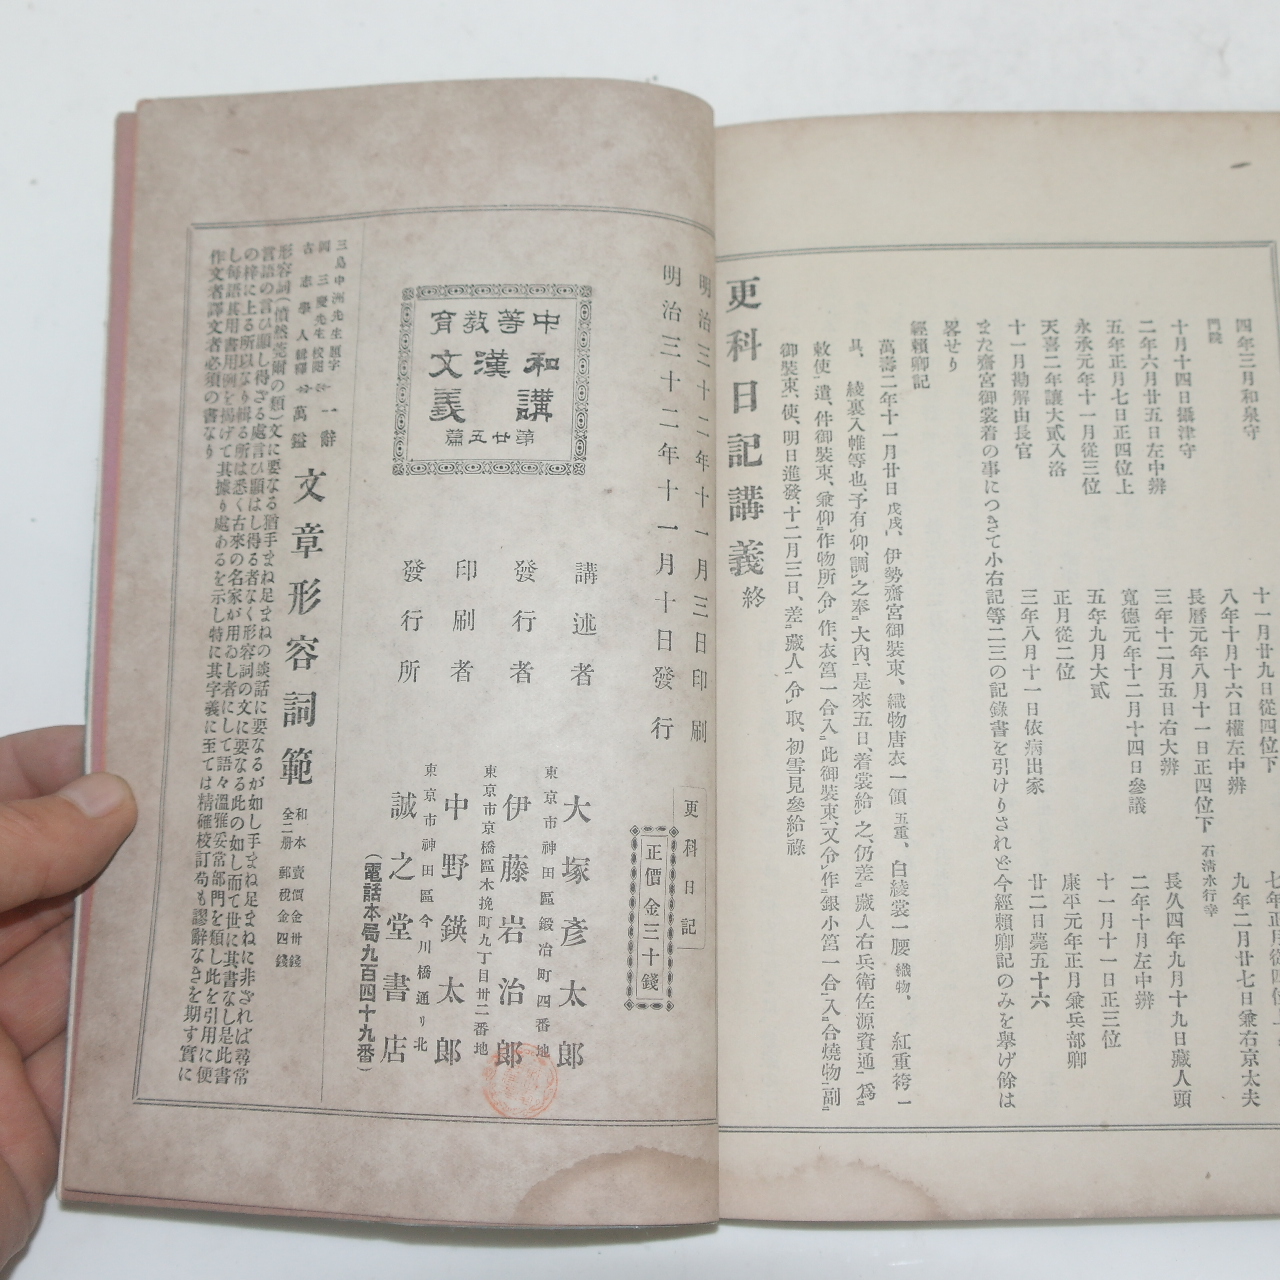 七年正月從四位上
十一月廿九日從四位下
九年二月廿七日兼右京太夫
八年十月十六日權左中辨
四年三月和泉守
長久四年九月十九日藏人頭
長曆元年八月十一日正四位下 石清水行幸
門院
二年十月左中辨
三年十二月五日右大辨
十月十四日攝津守
十一月十一日正三位
寬德元年十二月十四日參議
二年六月廿五日左中辨
康平元年正月兼兵部卿
五年九月大貳
五年正月七日正四位上
廿二日薨五十六
正月從二位
永承元年十一月從三位
三年八月十一日依病出家
天喜二年讓大貳入洛
十一月勘解由長官
また齋宮御裳着の事につきて小右記等二三の記錄書を引けりされど今經賴卿記のみを舉げ餘は
畧せり
經賴卿記
萬壽二年十一月廿日戊戌、伊勢齋宮御裝束、織物唐衣一領五重、白綾裳一腰織物、紅重袴一
具、綾裏入帷等也、予有仰、調之奉大內、是來五日、着裳給之、仍差藏人右兵衛佐源資通、爲
敕使遣、件御裝束、兼仰作物所令作、衣筥一合入此御裝束、又令作銀小筥一合、入合燒物副
御裝束、使、明日進發、十二月三日、差藏人令取、初雪見參給祿
更科日記講義 終
明治三十二年十一月三日印刷
明治三十二年十一月十日發行
更科日記
正價金三十錢
中等教育
和漢文
講義
第廿五篇
講述者 大塚彥太郎
東京市神田區鍛冶町四番地
發行者 伊藤岩治郎
東京市京橋區木挽町九丁目卅二番地
印刷者 中野鍈太郎
東京市神田區今川橋通り北
發行所 誠之堂書店
(電話本局九百四十九番)
三島中洲先生題字
四三慶先生校閱
古志學人輯釋
一辭
萬鎰
文章形容詞範
和本
全二册
賣價金卅錢
郵稅金四錢
形容詞(憤然莞爾の類)文に要なる猶手まね足まねの談話に要なるが如し手まね足まねに非ざれば尋常
言語の言ひ顯し得ざる處言ひ顯はし得る者なく形容詞の文に要なる此の如し而て世に其書なし是此書
の梓に上る所以なり輯る所は悉く古來の名家が用ゐし者にして語々溫雅妥常部門を類し此を引用に便
し每語其用書用例を揭げて其據り處あるを示し特に其字義に至ては精確校訂苟も謬辭なきを期す實に
作文者譯文者必須の書なり